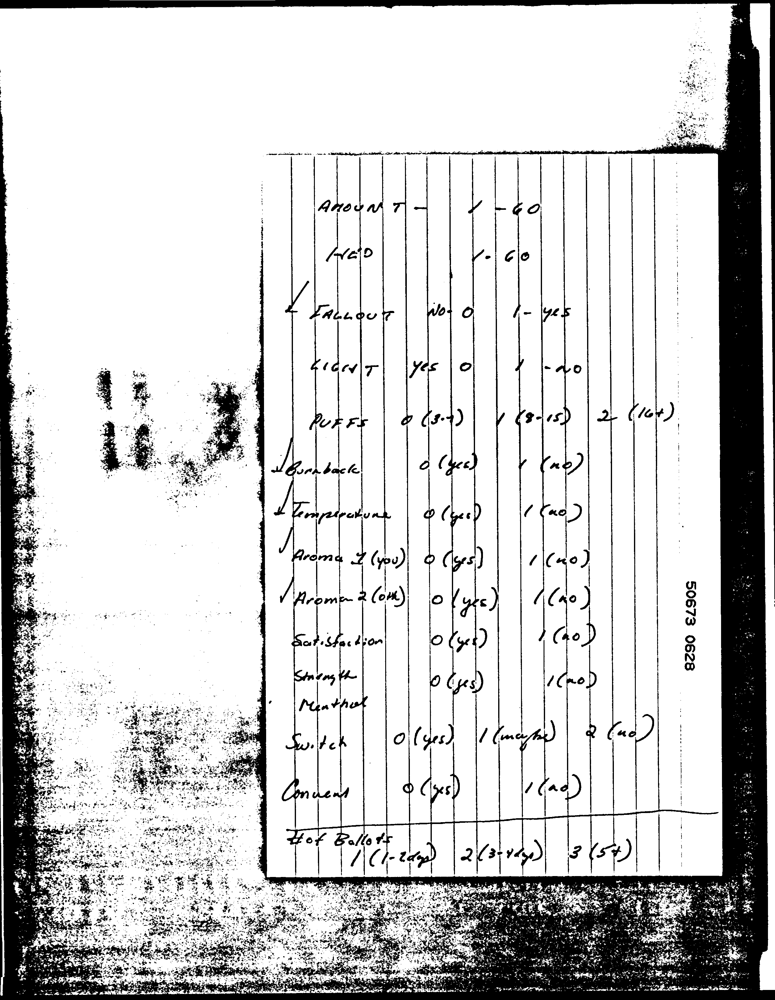 AMOUNT - 1 - 60
HED 1 - 60
✓ FALLOUT NO - 0 1 - yes
LIGHT yes 0 1 - no
PUFFS 0 (3-7) 1 (8-15) 2 (16+)
✓ Burnback 0 (yes) 1 (no)
✓ Temperature 0 (yes) 1 (no)
✓ Aroma 1 (you) 0 (yes) 1 (no)
✓ Aroma 2 (oth) 0 (yes) 1 (no)
Satisfaction 0 (yes) 1 (no)
Strength 0 (yes) 1 (no)
Menthol
Switch 0 (yes) 1 (maybe) 2 (no)
0 (yes) 1 (no)
# of Ballots
1 (1-2 dys) 2 (3-4 dys) 3 (5+)
50673 0628